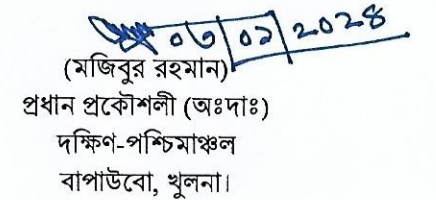 ০৩/০১/২০২৪
(মজিবুর রহমান)
প্রধান প্রকৌশলী (অঃদাঃ)
দক্ষিণ-পশ্চিমাঞ্চল
বাপাউবো, খুলনা।